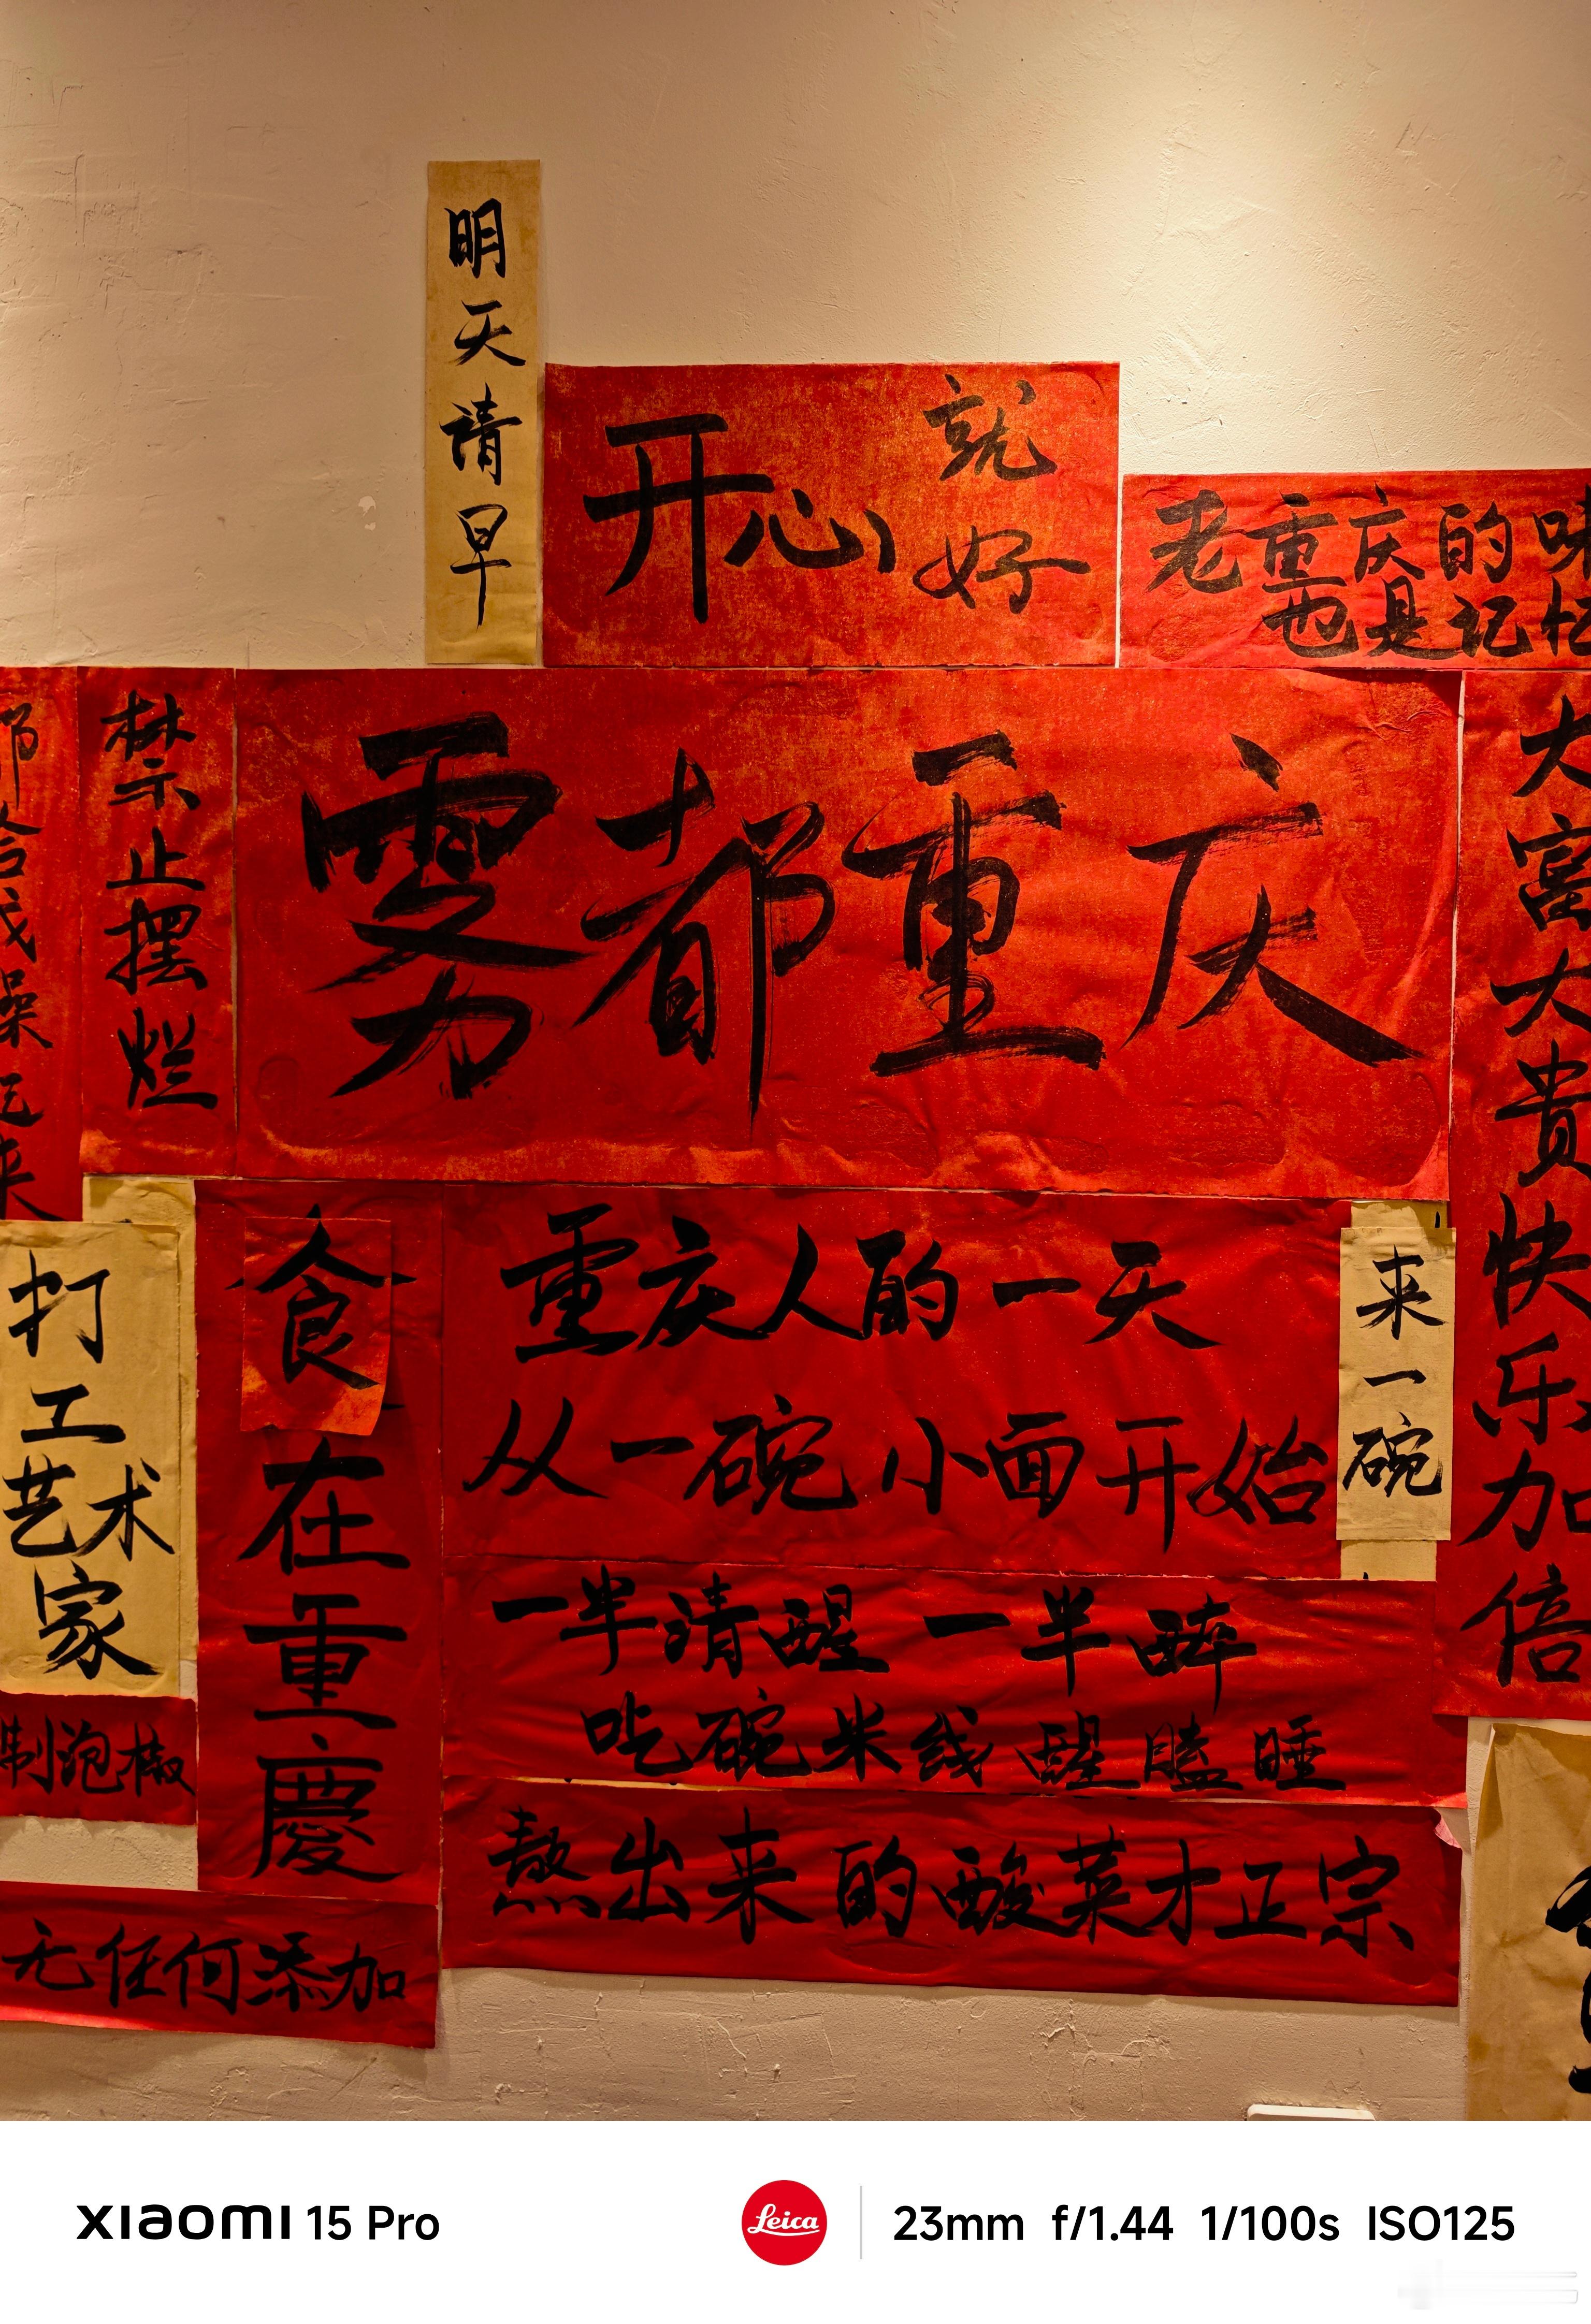 明天请早
开心就好
老重庆的味
也是记忆
禁止摆烂
雾都重庆
大富大贵快乐加倍
打工艺术家
食在重慶
重庆人的一天
从一碗小面开始
来一碗
一半清醒一半醉
吃碗米线醒瞌睡
制泡椒
熬出来的酸菜才正宗
无任何添加
xiaomi 15 Pro
Leica
23mm f/1.44 1/100s ISO125